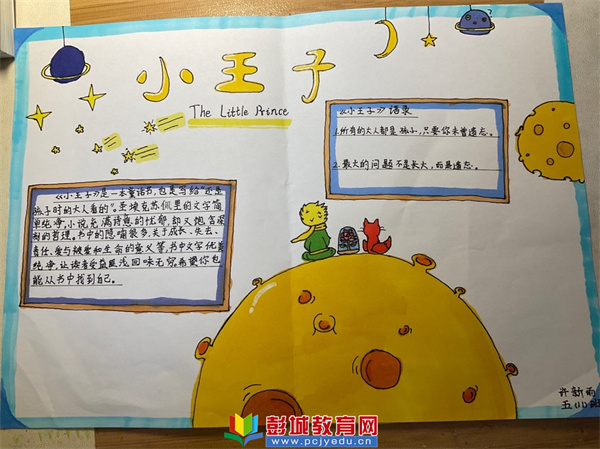 小王子
The Little Prince
《小王子》语录
1.所有的大人都是孩子,只要你未曾遗忘。
2.最大的问题不是长大,而是遗忘。
《小王子》是一本童话书,也是写给“还是
孩子时的大人看的”。圣埃克苏佩里的文字简
单纯净,小说充满诗意的忧郁,却又饱含深
刻的哲理。书中的隐喻很多,关于成长、失去、
责任、爱与被爱和生命的意义等,书中文字优美
纯净,让读者受益匪浅,回味无穷。希望你也
能从书中找到自己。
许新雨
彭城教育网
www.pcjyedu.cn